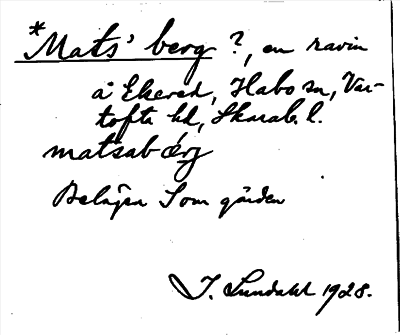 *Mats' berg ?, en ravin
å Ekered, Habo sn, Var-
tofta hd, Skarab. l.
matsabærj
Belägen S om gården
I. Lundahl 1928.